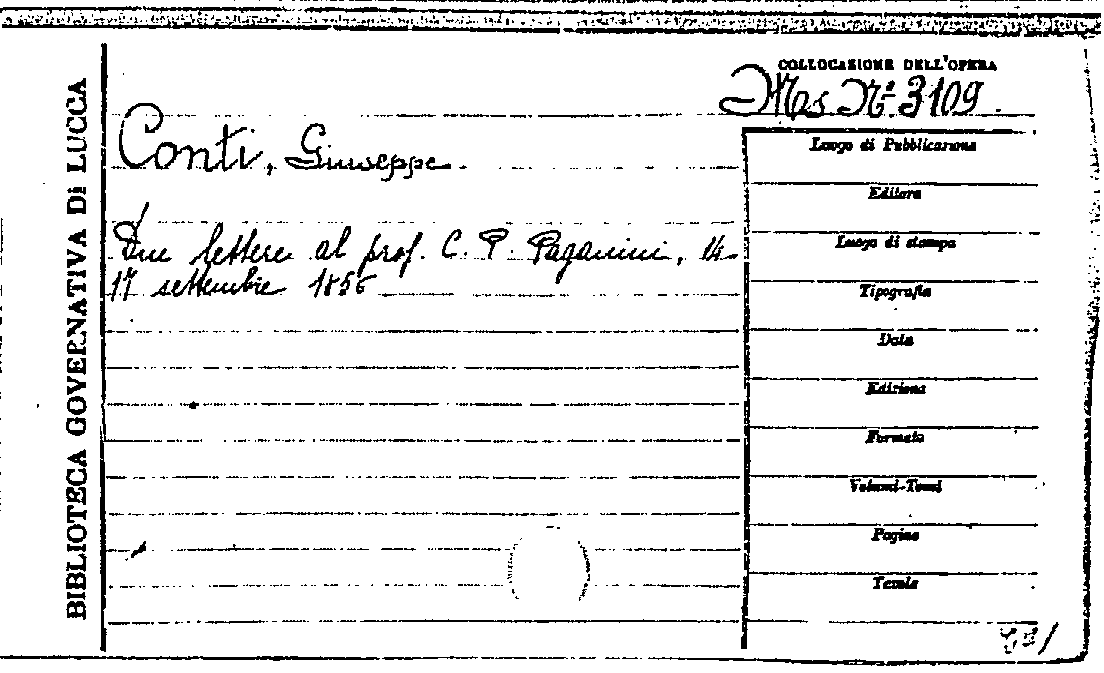 BIBLIOTECA GOVERNATIVA DI LUCCA
COLLOCAZIONE DELL'OPERA
Mos. N.º 3109.
Conti, Giuseppe.
Due lettere al prof. C. P. Paganini, 14-
17 settembre 1856
Luogo di Pubblicazione
Editore
Luogo di stampa
Tipografia
Data
Edizione
Formato
Volumi-Tomi
Pagine
Tavole